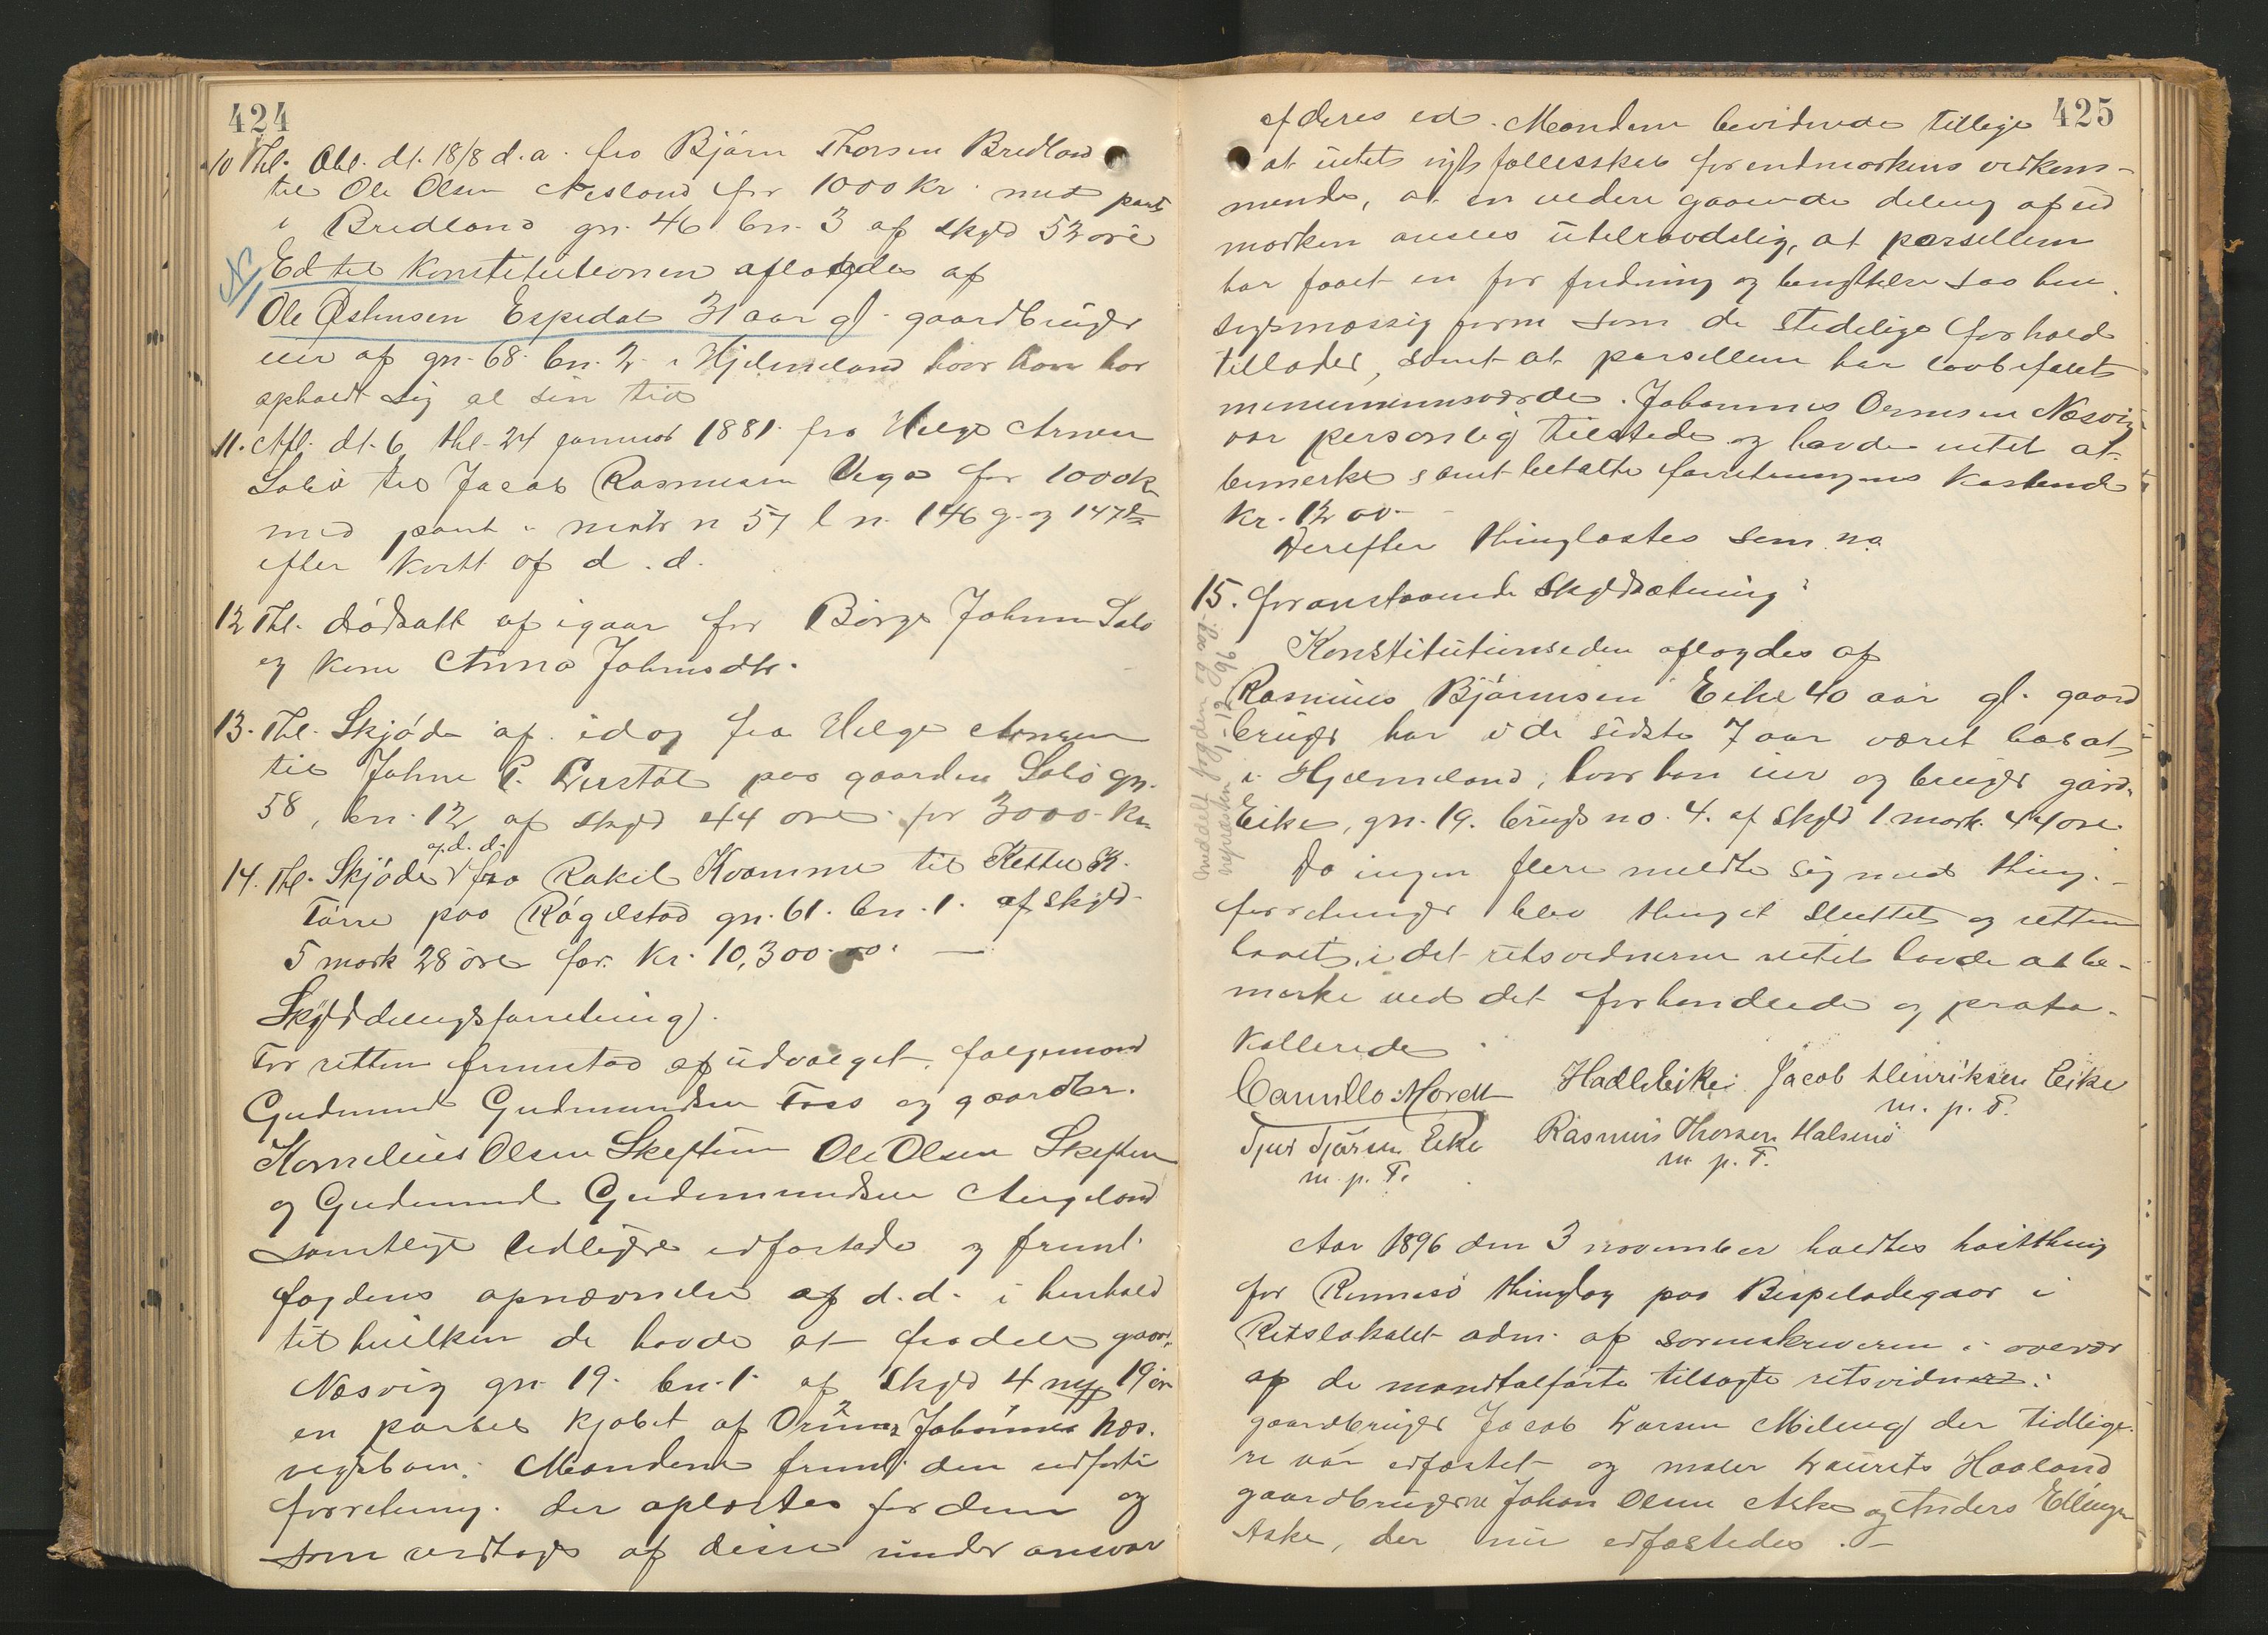 424
10 Thl. Obl. dt. 18/8 d.a. fra Bjørn Thorsen Bredland
til Ole Olsen Nesland for 1000 Kr. med pant
i Bredland gn. 46 bn. 3 af skyld 52 øre
Ed til Konstitutionen aflagdes af
Ole Østensen Espedal 31 aar gl. gaardbruger
eier af gn. 68 bn. 2 i Hjelmeland hvor han har
opholdt sig al sin tid
11. Afl. dt. 6 thl. 24 januar 1881 fra Helge Arnesen
Salø til Jacob Rasmusen Vega for 1000 Kr
med pant i matr n 57 l n. 146 g. og 147
efter kvitt af d.d.
12 Thl. dødsatt af igaar for Børge Johnsen Salø
og kone Anna Johnsdtr.
13. Thl. Skjøde af idag fra Helge Arnesen
til Johne P. paa gaarden Salø gn.
58, bn. 12 af skyld 44 øre for 3000 Kr
af d. d.
14. Thl. Skjøde fra Rakel Kvamme til K.
Tørre paa Røgelstad gn. 61. bn. 1. af skyld
5 mark 28 øre for Kr. 10,300.00. —
Skylddelingsforretning.
For retten fremstod af udvalget, følgemand
Gudmund Gudmundsen Foss og gaardbr.
Kornelius Olsen Skeftun Ole Olsen Skeftun
og Gudmund Gudmundsen
samtlige tidligere edfæstede og freml.
fogdens opnævnelse af d.d. i henhold
til hvilken de havde at fradele gaard.
Næsvig gn. 19. bn. 1. af skyld 4 mk 19 øre
en parsel kjøbt af Johannes Næs.
Mændene freml. den udførte
forretning. der oplæstes for dem og
som vedtoges af disse under ansvar
425
af deres ed. Mændene bevidnede tillige
at intet nyt fællesskab for indmarkens vedkom-
mende, at en videre gaaende deling af ud
marken ansees utilraadelig, at parsellen
har faaet en for fredning og benyttelse saa hen
sigsmæssig form som de stedlige forhold
tillader, samt at parsellen har lovbefalet
minimumsværdi. Johannes Ormsen Næsvig
var personlig tilstede og havde intet at
bemerke samt betalte forretningens kostende
Kr. 12 00.
Derefter thinglæstes som no
15. foranstaaende skyldsætning:
Konstitutionseden aflagdes af
Rasmus Bjørnsen Eike 40 aar gl. gaard
bruger har i de sidste 7 aar været bosat
i Hjelmeland, hvor han eier og bruger gård.
Eike, gn. 19. brugs no. 4. af skyld 1 mark 44 øre.
meddelt fogden og sog-
nepræsten 1-12 96
Da ingen flere meldte sig med thing-
forretninger blev thinget sluttet og retten
hævet, idet retsvidnerne intet havde at be-
mærke ved det forhandlede og proto-
kollerede.
Camillo Morell Hadle Eike Jacob Henriksen Eike
m. p. P.
Tjus Tjørsen Eike Rasmus Thorsen Halsnø
m. p. P. m. p. P.
Aar 1896 den 3 november holdtes høstthing
for Rennesø thinglag paa Bispeladegaar i
Retslokalet adm. af sorenskriveren i overvær
af de mandtalførte tilsagte retsvidner:
gaardbruger Jacob Larsen Meling der tidlige-
re var edfæstet og maler Laurits Haaland
gaardbrugerne Johan Olsen Aske og Anders Ellingsen
Aske, der nu edfæstedes. —